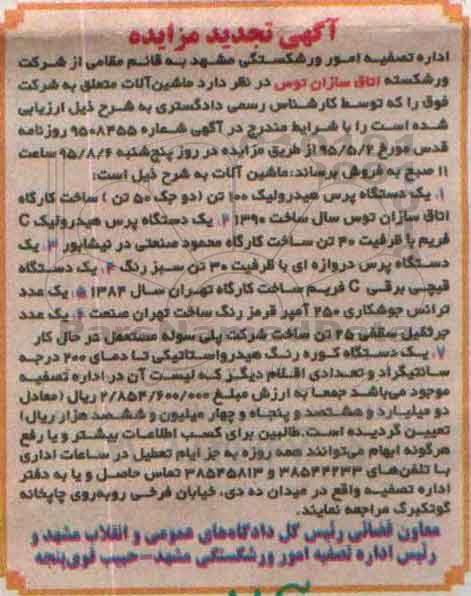 آگهی تجدید مزایده
اداره تصفیه امور ورشکستگی مشهد به قائم مقامی از شرکت
ورشکسته اتاق سازان توس در نظر دارد ماشین‌آلات متعلق به شرکت
فوق را که توسط کارشناس رسمی دادگستری به شرح ذیل ارزیابی
شده است را با شرایط مندرج در آگهی شماره ۹۵۰۸۴۵۵ روزنامه
قدس مورخ ۹۵/۵/۲ از طریق مزایده در روز پنج‌شنبه ۹۵/۸/۶ ساعت
۱۱ صبح به فروش برساند: ماشین آلات به شرح ذیل است:
۱. یک دستگاه پرس هیدرولیک ۱۰۰ تن (دو جک ۵۰ تن ) ساخت کارگاه
اتاق سازان توس سال ساخت ۱۳۹۰ ۲. یک دستگاه پرس هیدرولیک C
فریم با ظرفیت ۴۰ تن ساخت کارگاه محمود صنعتی در نیشابور ۳. یک
دستگاه پرس دروازه ای با ظرفیت ۳۰ تن سبز رنگ ۴. یک دستگاه
قیچی برقی C فریم ساخت کارگاه تهران سال ۱۳۸۴ ۵. یک عدد
ترانس جوشکاری ۲۵۰ آمپر قرمز رنگ ساخت تهران صنعت ۶. یک عدد
جرثقیل سقفی ۲۵ تن ساخت شرکت پلی سوله مستعمل در حال کار
۷. یک دستگاه کوره رنگ هیدرواستاتیکی تا دمای ۲۰۰ درجه
سانتیگراد و تعدادی اقلام دیگر که لیست آن در اداره تصفیه
موجود می‌باشد جمعا به ارزش مبلغ ۲/۸۵۴/۶۰۰/۰۰۰ ریال (معادل
دو میلیارد و هشتصد و پنجاه و چهار میلیون و ششصد هزار ریال)
تعیین گردیده است. طالبین برای کسب اطلاعات بیشتر و یا رفع
هرگونه ابهام می‌توانند همه روزه به جز ایام تعطیل در ساعات اداری
با تلفن‌های ۳۸۵۴۴۲۳۳ و ۳۸۵۴۵۸۱۳ تماس حاصل و یا به دفتر
اداره تصفیه واقع در میدان ده دی، خیابان فرخی روبه‌روی چاپخانه
گوتنبرگ مراجعه نمایند.
معاون قضائی رئیس کل دادگاه‌های عمومی و انقلاب مشهد و
رئیس اداره تصفیه امور ورشکستگی مشهد–حبیب قوی‌پنجه